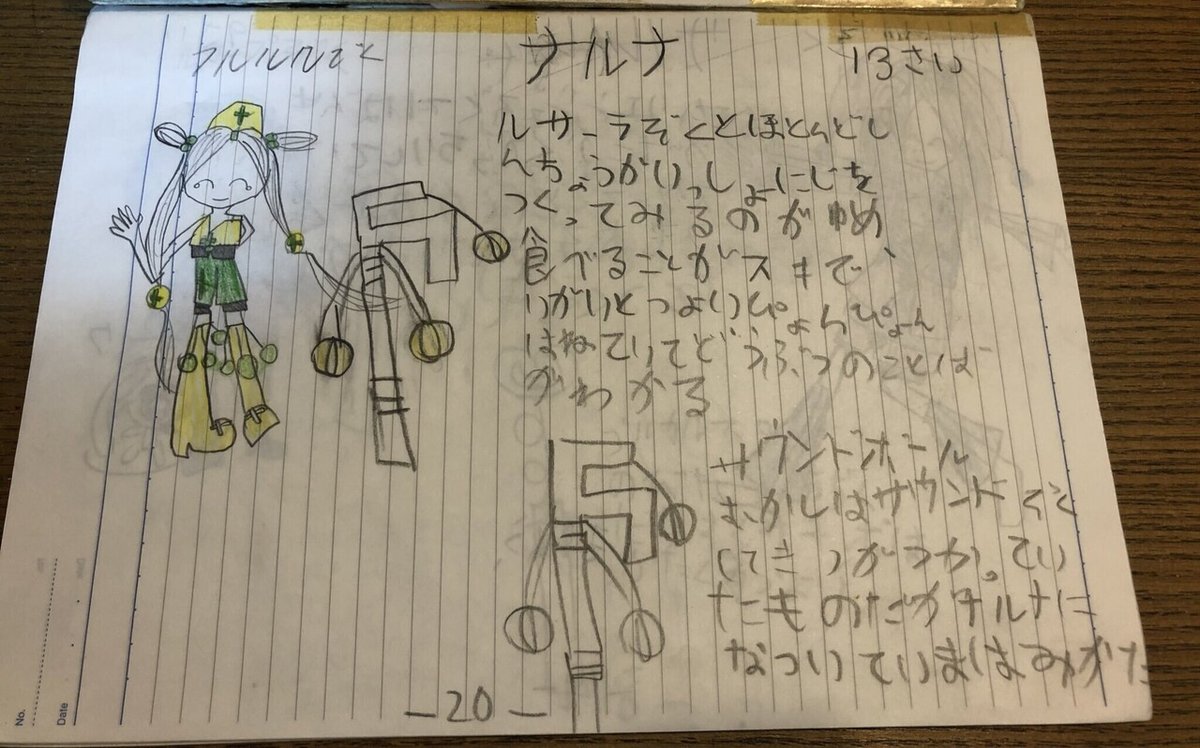 ナルナ
13さい
ルサーラぞくとほとんどし
んちょうがいっしょにじを
つくってみるのがゆめ
食べることがスキで、
いがいとつよいぴょんぴょん
はねていてどうぶつのことば
がわかる
サウンドボール
むかしはサウンドぞく
してきつがつかってい
たものだがナルナに
なついていまはみかた
—20—
No.
Date